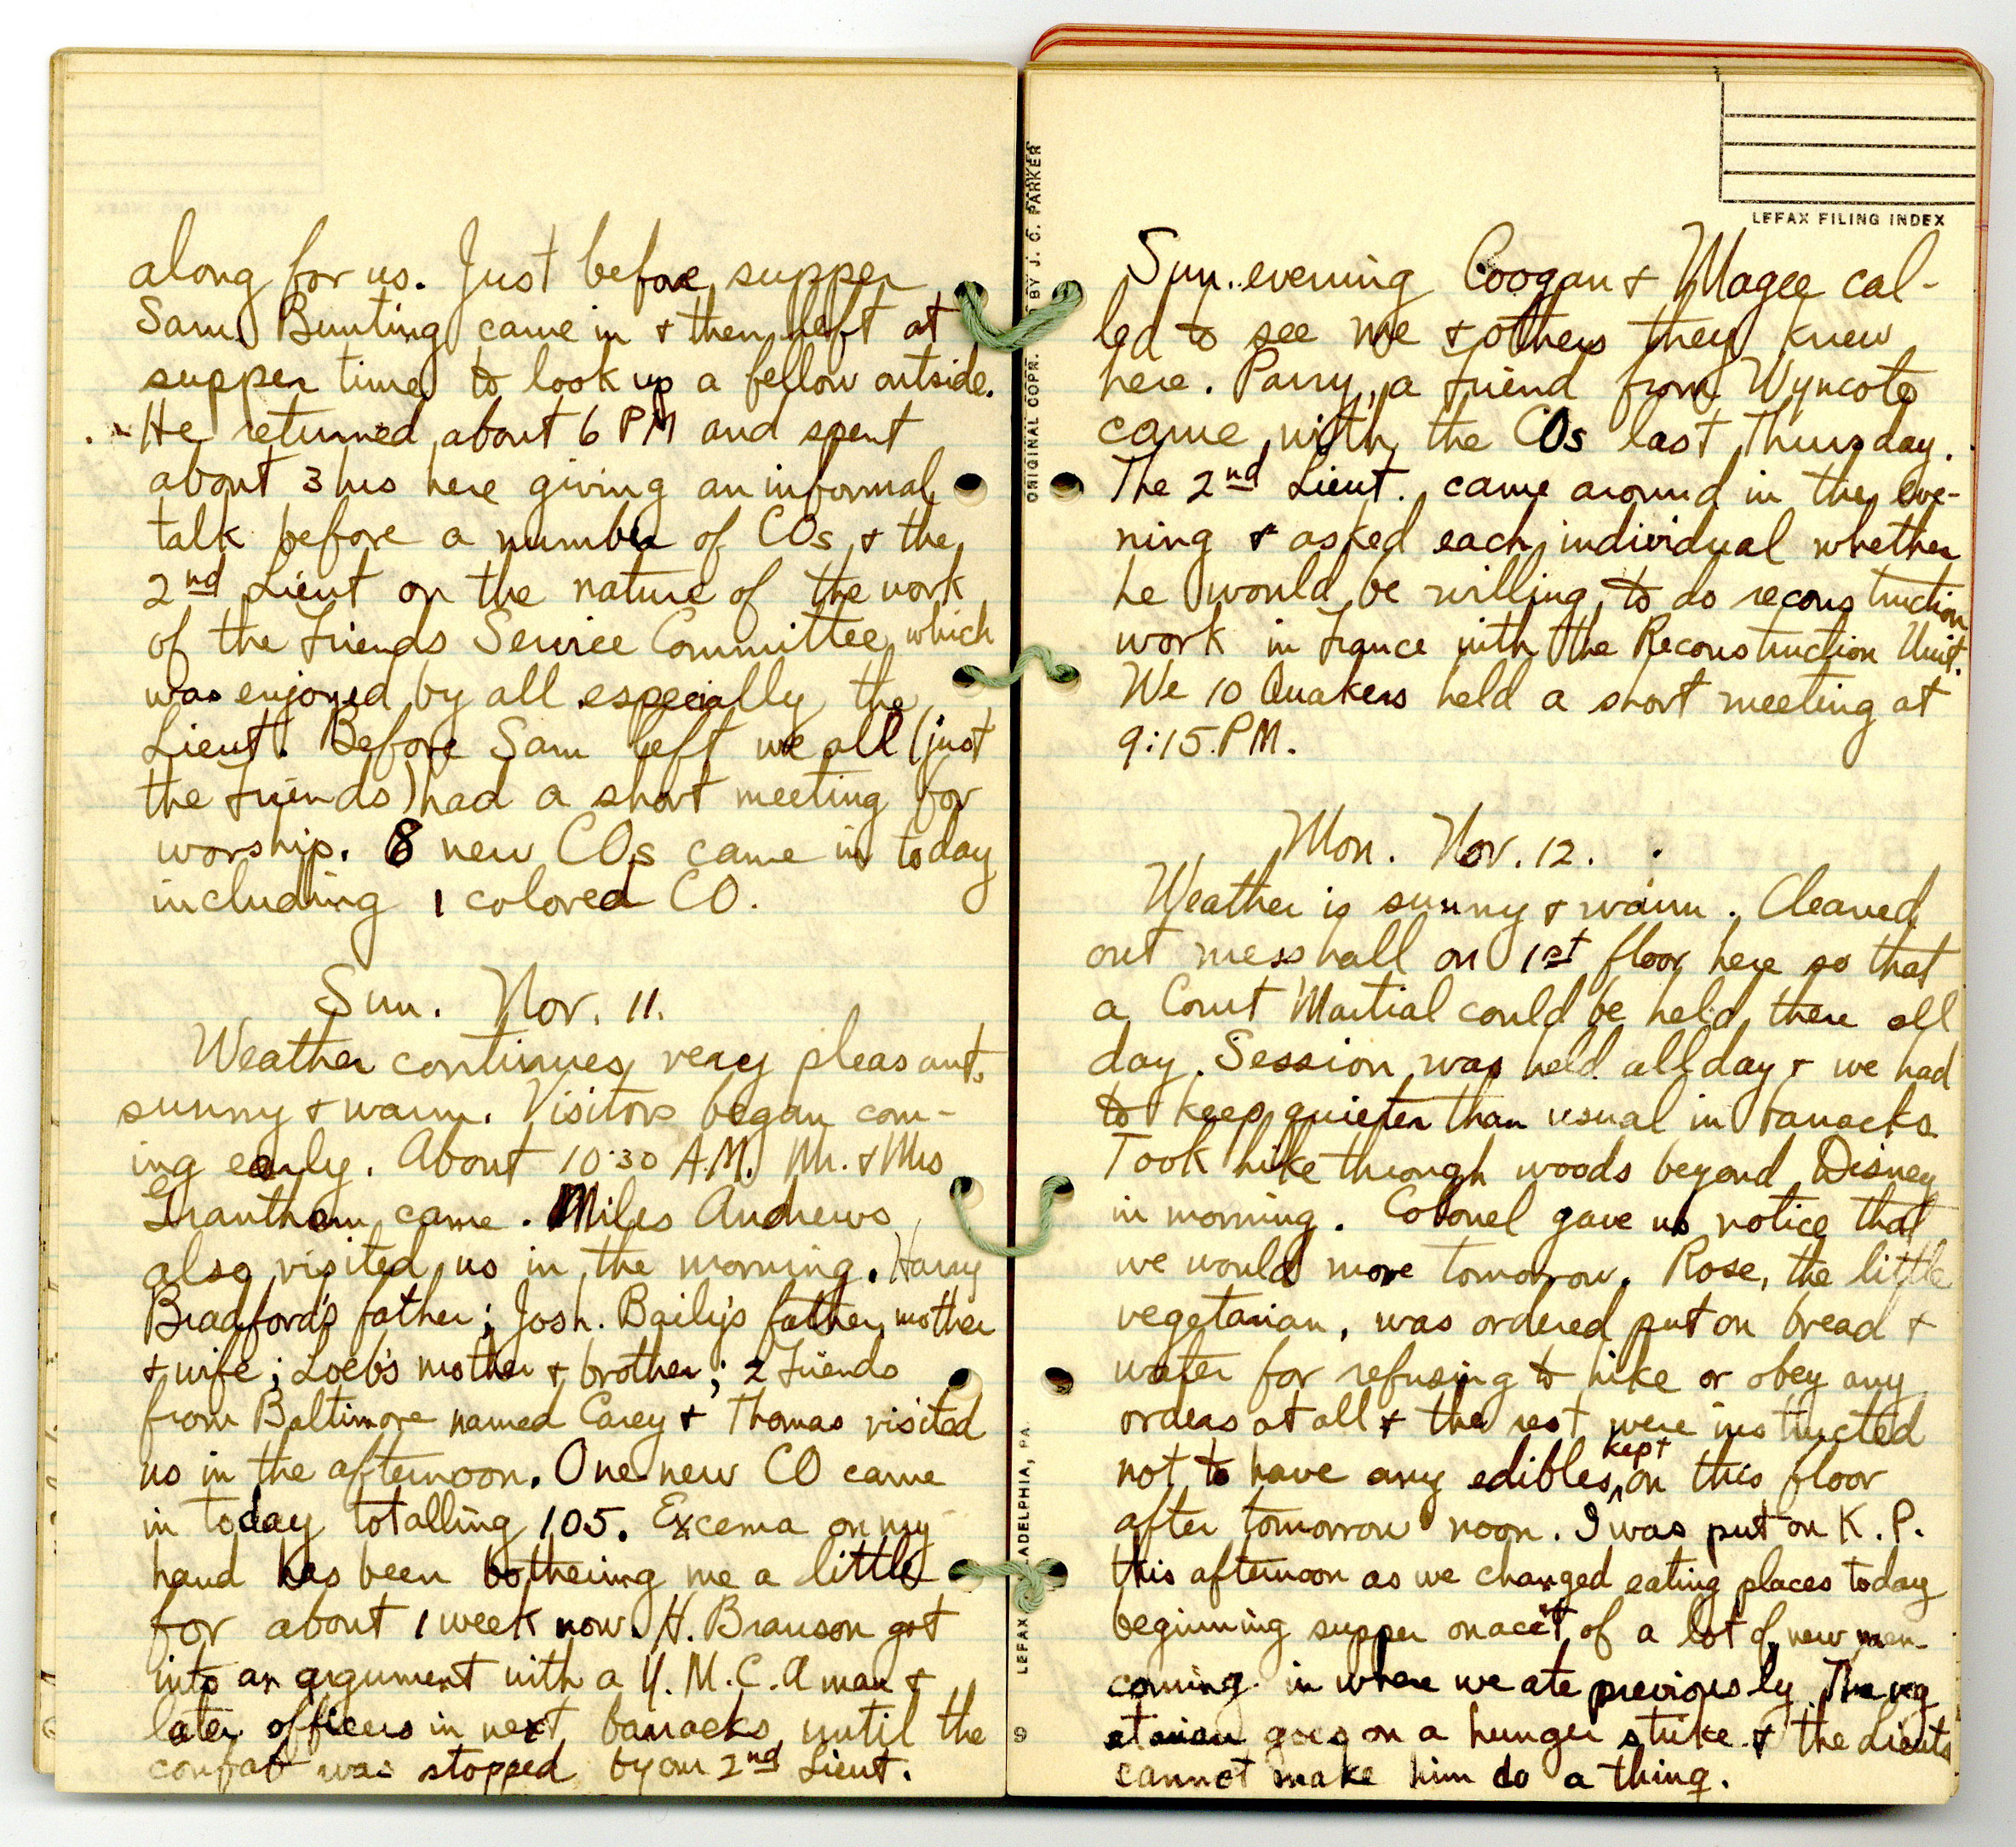 along for us. Just before supper
Sam Bunting came in & then left at
supper time to look up a fellow outside.
He returned about 6 PM and spent
about 3 hrs here giving an informal
talk before a number of COs & the
2nd Lieut on the nature of the work
of the Friends Service Committee which
was enjoyed by all especially the
Lieut. Before Sam left we all (just
the Friends) had a short meeting for
worship. 8 new COs came in today
including 1 colored CO.
Sun. Nov. 11.
Weather continues very pleasant,
sunny & warm. Visitors began com-
ing early. About 10:30 A.M. Mr. & Mrs
Grantham came. Miles Andrews
also visited us in the morning. Harry
Bradford's father; Josh. Baily's father, mother
& wife; Loeb's mother & brother; 2 Friends
from Baltimore named Carey & Thomas visited
us in the afternoon. One new CO came
in today totalling 105. Excema on my
hand has been bothering me a little
for about 1 week now. H. Branson got
into an argument with a Y.M.C.A man &
later officers in next barracks until the
confab was stopped by our 2nd Lieut.
LEFAX FILING INDEX
Sun. evening Coogan & Magee cal-
led to see me & others they knew
here. Parry, a Friend from Wyncote
came with the COs last Thursday.
The 2nd Lieut. came around in the eve-
ning & asked each individual whether
he would be willing to do reconstruction
work in France with the Reconstruction Unit.
We 10 Quakers held a short meeting at
9:15 PM.
Mon. Nov. 12.
Weather is sunny & warm. Cleaned
out mess hall on 1st floor here so that
a Court Martial could be held there all
day. Session was held all day & we had
to keep quieter than usual in barracks
Took hike through woods beyond Disney
in morning. Colonel gave us notice that
we would move tomorrow. Rose, the little
vegetarian, was ordered put on bread &
water for refusing to hike or obey any
orders at all & the rest were instructed
not to have any edibles kept on this floor
after tomorrow noon. I was put on K.P.
this afternoon as we changed eating places today
beginning supper on acc't of a lot of new men
coming in where we ate previously. The veg
etarian goes on a hunger strike & the Lieuts
cannot make him do a thing.
ORIGINAL COPR. BY J. C. PARKER
LEFAX ADELPHIA, PA.
9